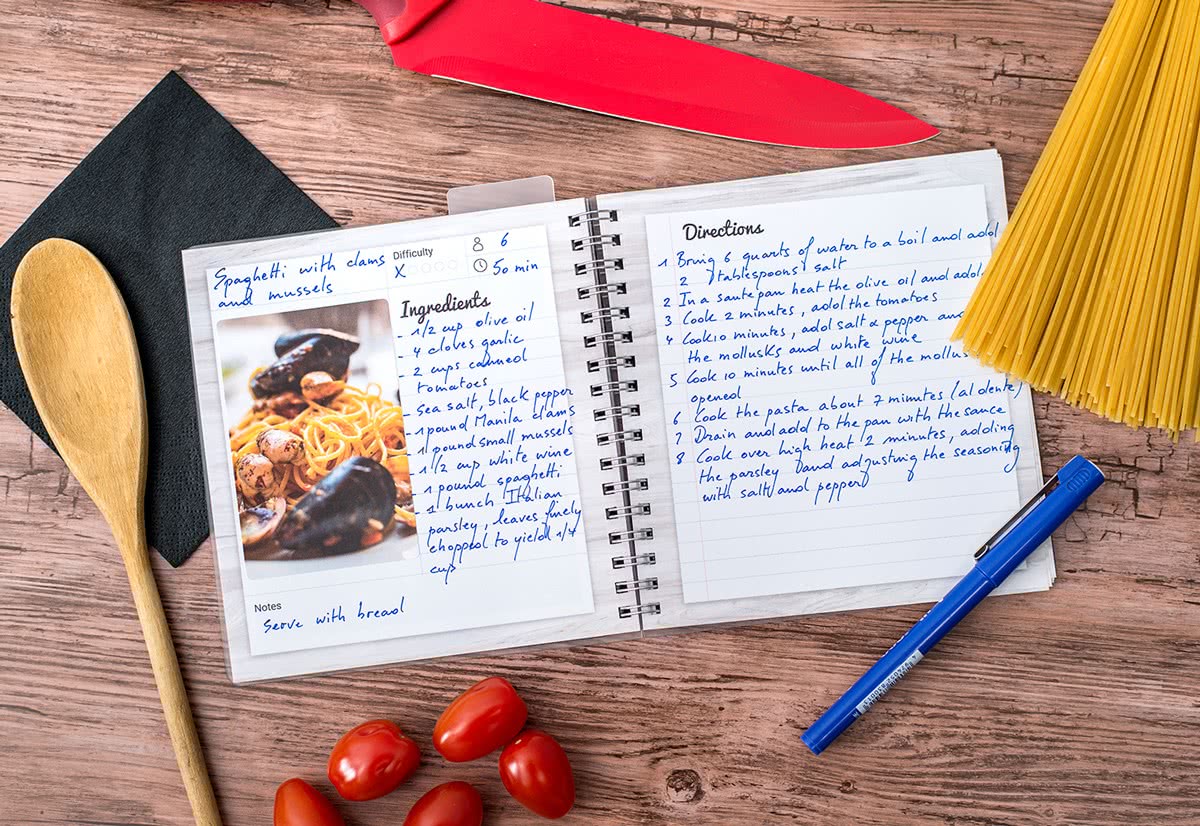 Spaghetti with clams
and mussels
Difficulty
X
6
50 min
Ingredients
- 1/2 cup olive oil
- 4 cloves garlic
- 2 cups canned
tomatoes
- sea salt, black pepper
- 1 pound Manila clams
- 1 pound small mussels
- 1/2 cup white wine
- 1 pound spaghetti
- 1 bunch Italian
parsley, leaves finely
chopped to yield 1/4
cup
Notes
Serve with bread
Directions
1 Bring 6 quarts of water to a boil and add
2 tablespoons salt
2 In a saute pan heat the olive oil and add
3 Cook 2 minutes, add the tomatoes
4 Cook 10 minutes, add salt & pepper and
the mollusks and white wine
5 Cook 10 minutes until all of the mollus
opened
6 Cook the pasta about 7 minutes (al dente)
7 Drain and add to the pan with the sauce
8 Cook over high heat 2 minutes, adding
the parsley and adjusting the seasoning
with salt and pepper